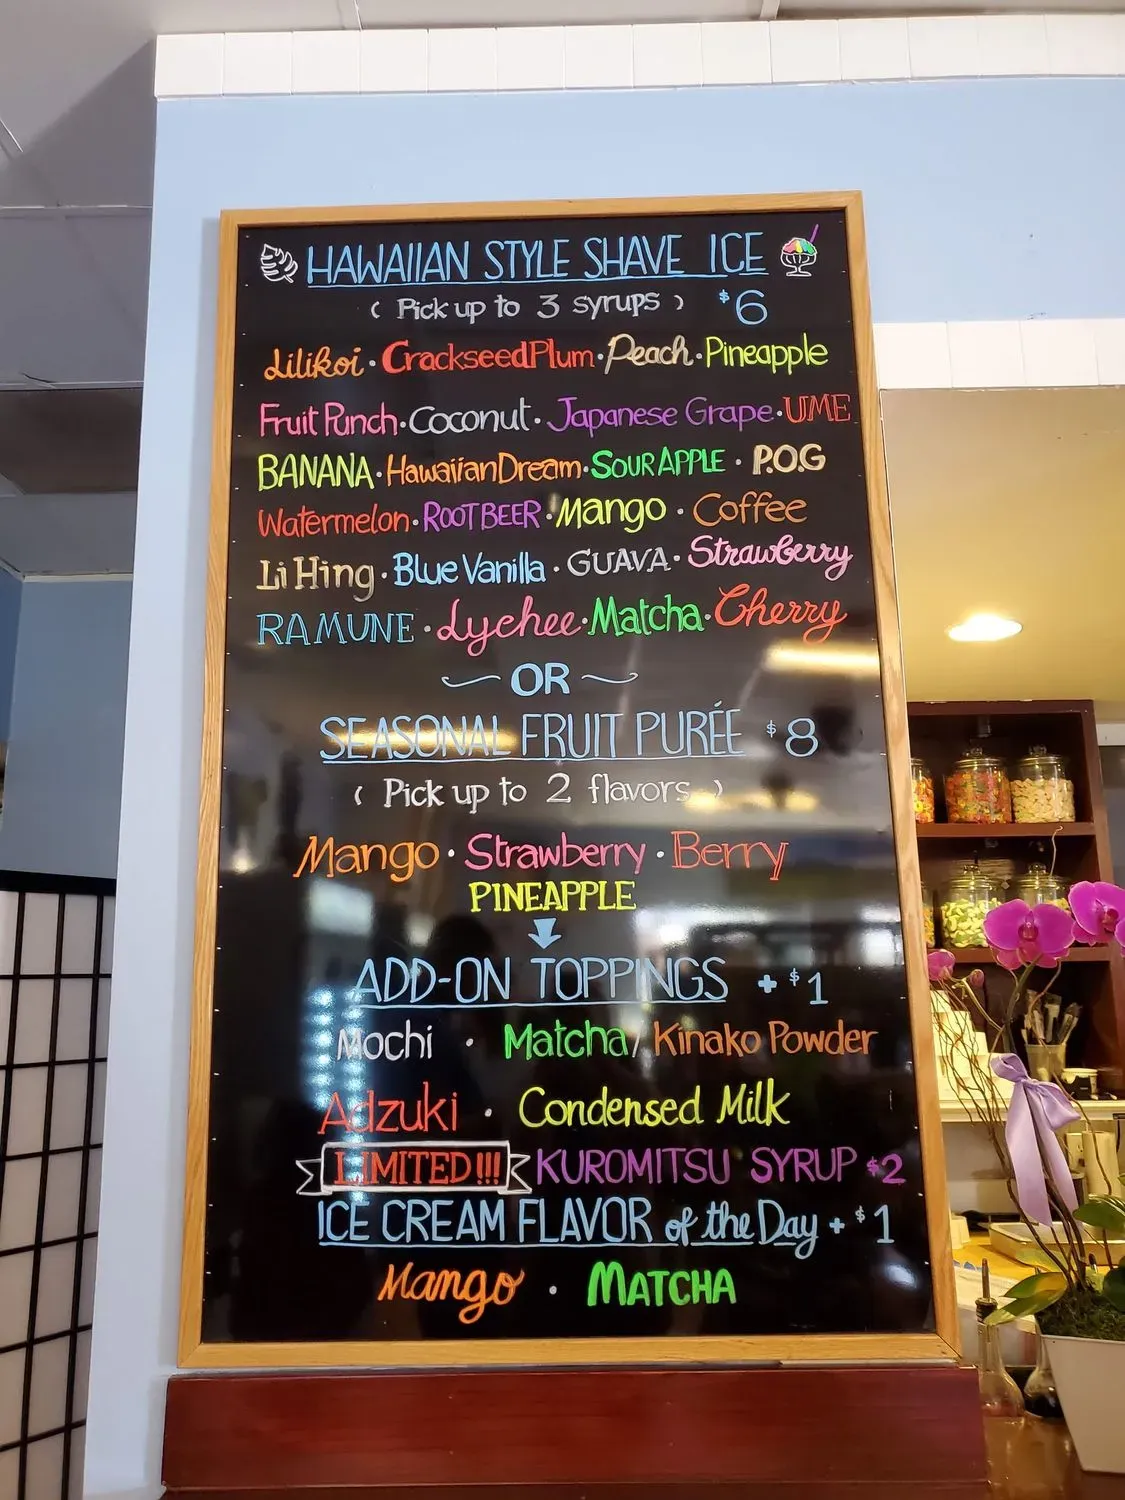 HAWAIIAN STYLE SHAVE ICE
( Pick up to 3 syrups ) $6
Lilikoi · Crackseed Plum · Peach · Pineapple
Fruit Punch · Coconut · Japanese Grape · UME
BANANA · Hawaiian Dream · SOUR APPLE · P.O.G
Watermelon · ROOT BEER · Mango · Coffee
Li Hing · Blue Vanilla · GUAVA · Strawberry
RAMUNE · Lychee · Matcha · Cherry
OR
SEASONAL FRUIT PURÉE $8
( Pick up to 2 flavors )
Mango · Strawberry · Berry
PINEAPPLE
ADD-ON TOPPINGS + $1
Mochi · Matcha / Kinako Powder
Adzuki · Condensed Milk
LIMITED!!! KUROMITSU SYRUP $2
ICE CREAM FLAVOR of the Day + $1
Mango · MATCHA